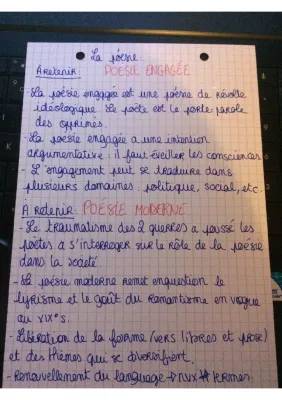 La poésie
A retenir: POESIE ENGAGÉE
- La poésie engagée est une poésie de révolte
idéologique. Le poète est le porte parole
des opprimés.
- La poésie engagée a une intention
argumentative : il faut éveiller les consciences.
- L'engagement peut se traduire dans
plusieurs domaines : politique, social, etc.
À retenir: POÉSIE MODERNE
- Le traumatisme des 2 guerres a poussé les
poètes a s'interroger sur le rôle de la poésie
dans la société.
- La poésie moderne remet enquestion le
lyrisme et le goût du Romantisme en vogue
au XIXe s.
- Libération de la forme (vers libres et prose)
et des thèmes qui se diversifient.
- Renouvellement du language → nvx termes.